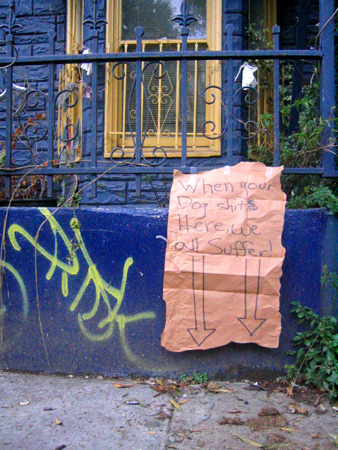 When your
Dog shits
Here, we
all Suffer!